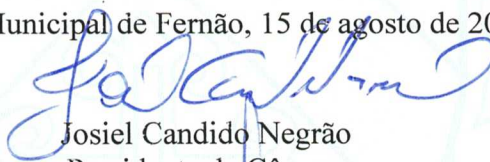 Municipal de Fernão, 15 de agosto de 20
Josiel Candido Negrão